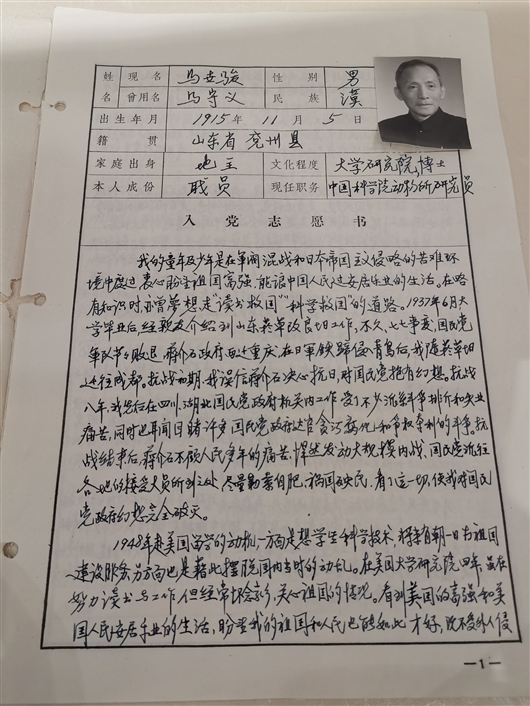 姓 现名 马世骏 性别 男
名 曾用名 马守义 民族 汉
出生年月 1915年 11月 5日
籍贯 山东省兖州县
家庭出身 地主 文化程度 大学研究院,博士
本人成份 职员 现任职务 中国科学院动物所研究员
入党志愿书
我的童年及少年是在军阀混战和日本帝国主义侵略的苦难环
境中度过,衷心盼望祖国富强,能让中国人民过安居乐业的生活。在略
有知识时,亦曾梦想走“读书救国”“科学救国”的道路。1937年6月大
学毕业后,经亲友介绍到山东菸草改良场工作,不久,七七事变,国民党
军队节节败退,蒋介石政府西迁重庆,在日军铁蹄侵青岛后,我随菸草场
迁往成都。抗战初期,我误信蒋介石决心抗日,对国民党抱有幻想。抗战
八年,我先后在四川、湖北国民党政府机关内工作,受了不少派纷争排斥和失业
痛苦,同时也耳闻目睹许多国民党政府达官贪污腐化和争权夺利的斗争,抗
战结束后,蒋介石不顾人民多年的痛苦,悍然发动大规模内战,国民党派往
各地的接受人员所到之处,尽量勒索自肥,祸国殃民,看了这一切,使我对国民
党政府幻想完全破灭。
1948年赴美国留学的动机,一方面是想学生科学技术,将来有朝一日为祖国
建设服务,另方面也是藉此摆脱国内当时的动乱。在美国大学研究院四年,虽在
努力读书与工作,但经常怀念家乡,关心祖国的情况。看到美国的富强和美
国人民安居乐业的生活,盼望我的祖国和人民也能如此才好,既不受外人侵
—1—